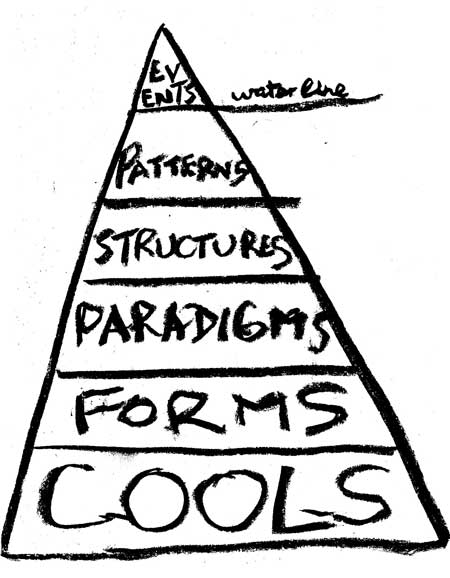 EV
ENTS
water line
PATTERNS
STRUCTURES
PARADIGMS
FORMS
COOLS